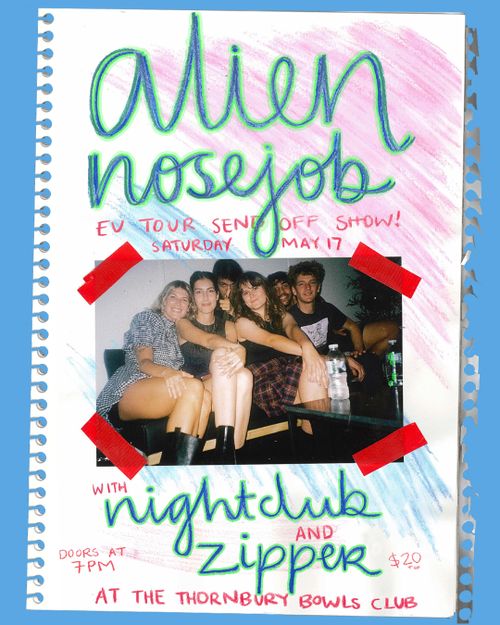 alien
nosejob
EU TOUR SEND OFF SHOW!
SATURDAY MAY 17
WITH
nightclub
AND
zipper
DOORS AT
7PM
$20
AT THE THORNBURY BOWLS CLUB